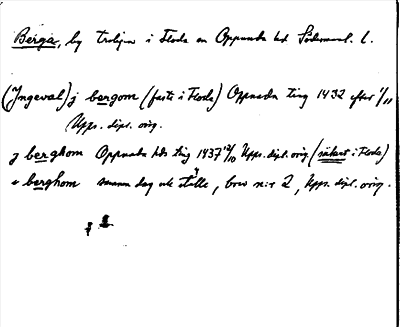 Berga, by i Floda sn Oppunda hd Södermanl. l.
(Ingeval) j bergom (faste i Floda) Oppunda ting 1432 efter 1/11
Upps. dipl. orig.
j berghom Oppunda hds ting 1437 12/10 Upps. dipl. orig. (i Floda)
e berghom samma dag ställe, brev n:r 2, Upps. dipl. orig.